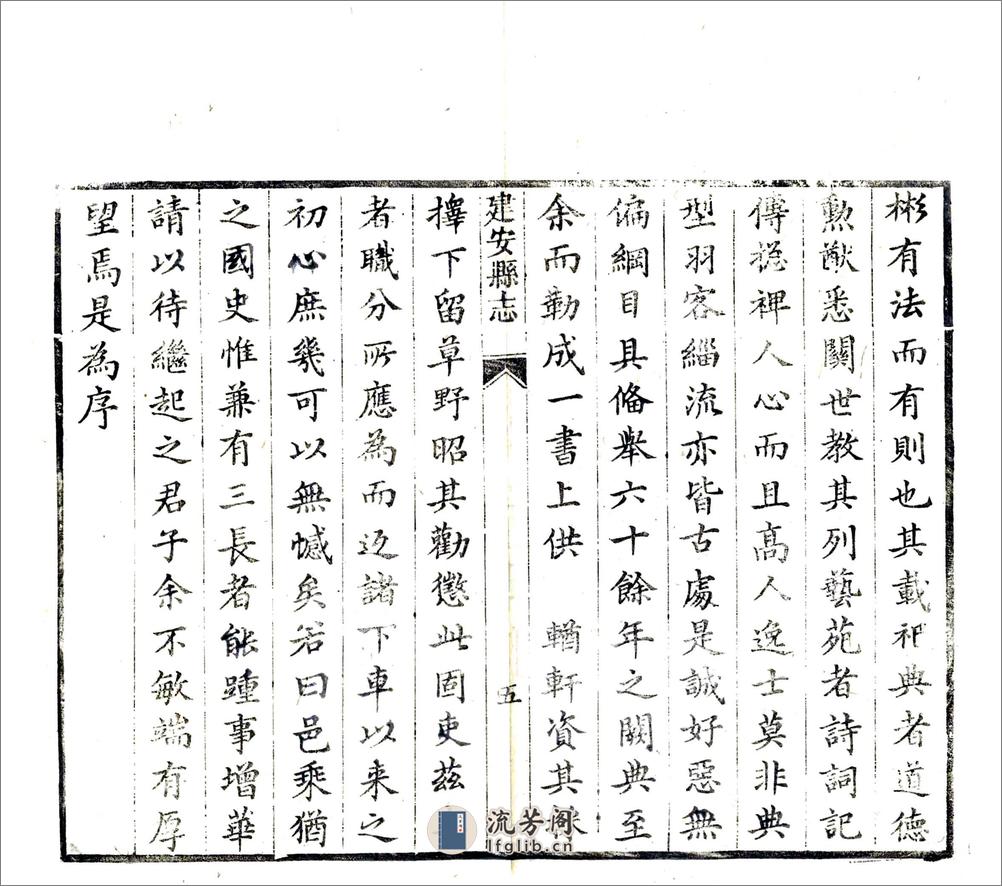 彬有法而有則也其載祀典者道德
勲猷悉關世教其列藝苑者詩詞記
傳摠裨人心而且高人逸士莫非典
型羽客緇流亦皆古處是誠好惡無
偏綱目具俻舉六十餘年之闕典至
余而勒成一書上供　輶軒資其採
建安縣志
五
擇下留草野昭其勸懲此固吏茲
者職分所應為而迈諸下車以来之
初心庶幾可以無憾矣若曰邑乘猶
之國史惟兼有三長者能踵事增華
請以待繼起之君子余不敏端有厚
望焉是為序
流芳阁
lfglib.cn